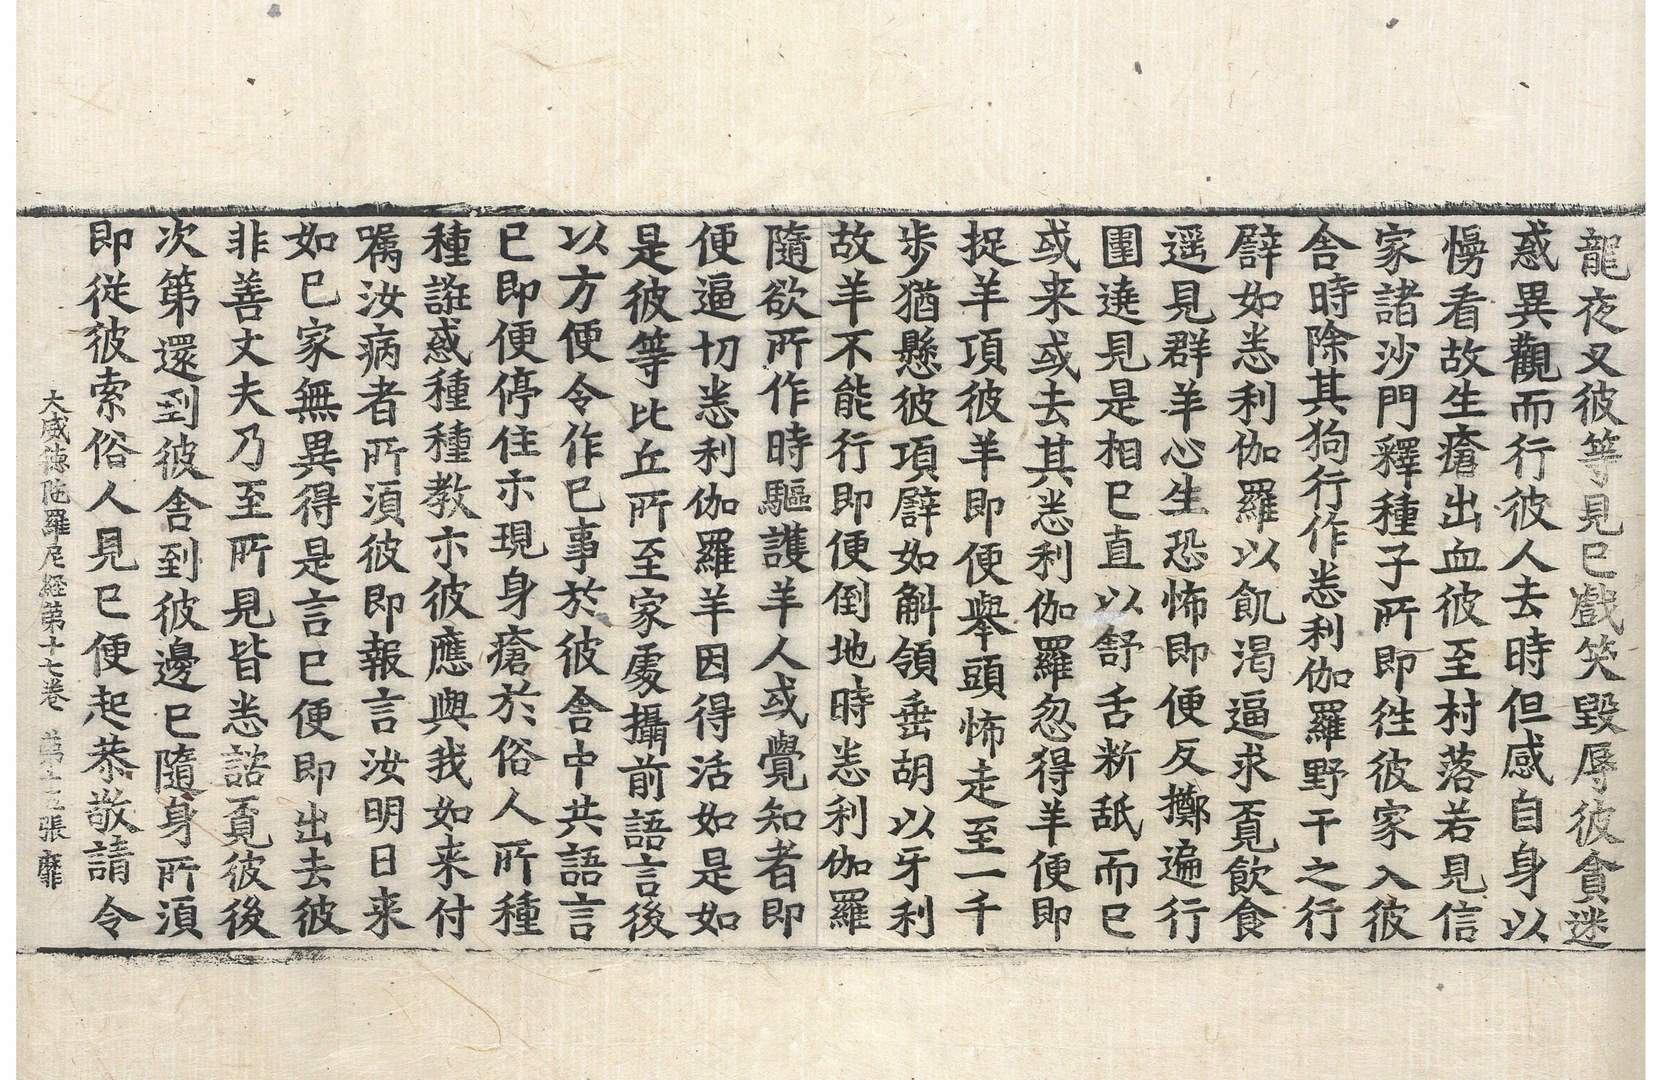 龍夜叉彼等見已戲笑毀辱彼貪迷
惑異觀而行彼人去時但感自身以
慢看故生瘡出血彼至村落若見信
家諸沙門釋種子所即徃彼家入彼
舎時除其狗行作恙利伽羅野干之行
譬如恙利伽羅以飢渴逼求覔飲食
遥見群羊心生恐怖即便反擲遍行
圍遶見是相已直以舒舌断舐而已
或来或去其恙利伽羅忽得羊便即
捉羊項彼羊即便舉頭怖走至一千
歩猶懸彼項譬如斛領垂胡以牙利
故羊不能行即便倒地時恙利伽羅
隨欲所作時驅護羊人或覺知者即
便逼切恙利伽羅羊因得活如是如
是彼等比丘所至家處攝前語言後
以方便令作已事於彼舎中共語言
已即便停住亦現身瘡於俗人所種
種誑惑種種教亦彼應與我如来付
嘱汝病者所湏彼即報言汝明日来
如已家無異得是言已便即出去彼
非善丈夫乃至所見皆恙諮覔彼後
次第還到彼舎到彼邊已隨身所湏
即從彼索俗人見已便起恭敬請令
大威徳陁羅尼経第十七巻　第十五張　靡